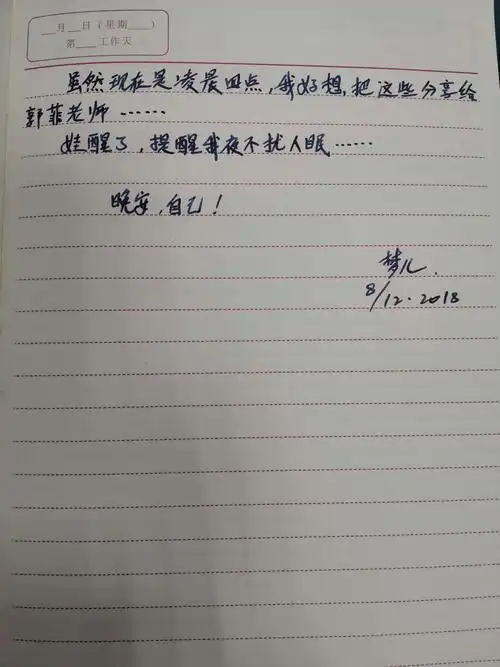 __月__日(星期____)
第____工作天
虽然现在是凌晨四点,我好想,把这些分享给
郭菲老师……
娃醒了,提醒我夜不扰人眠……
晚安,自己!
梦儿.
8/12.2018